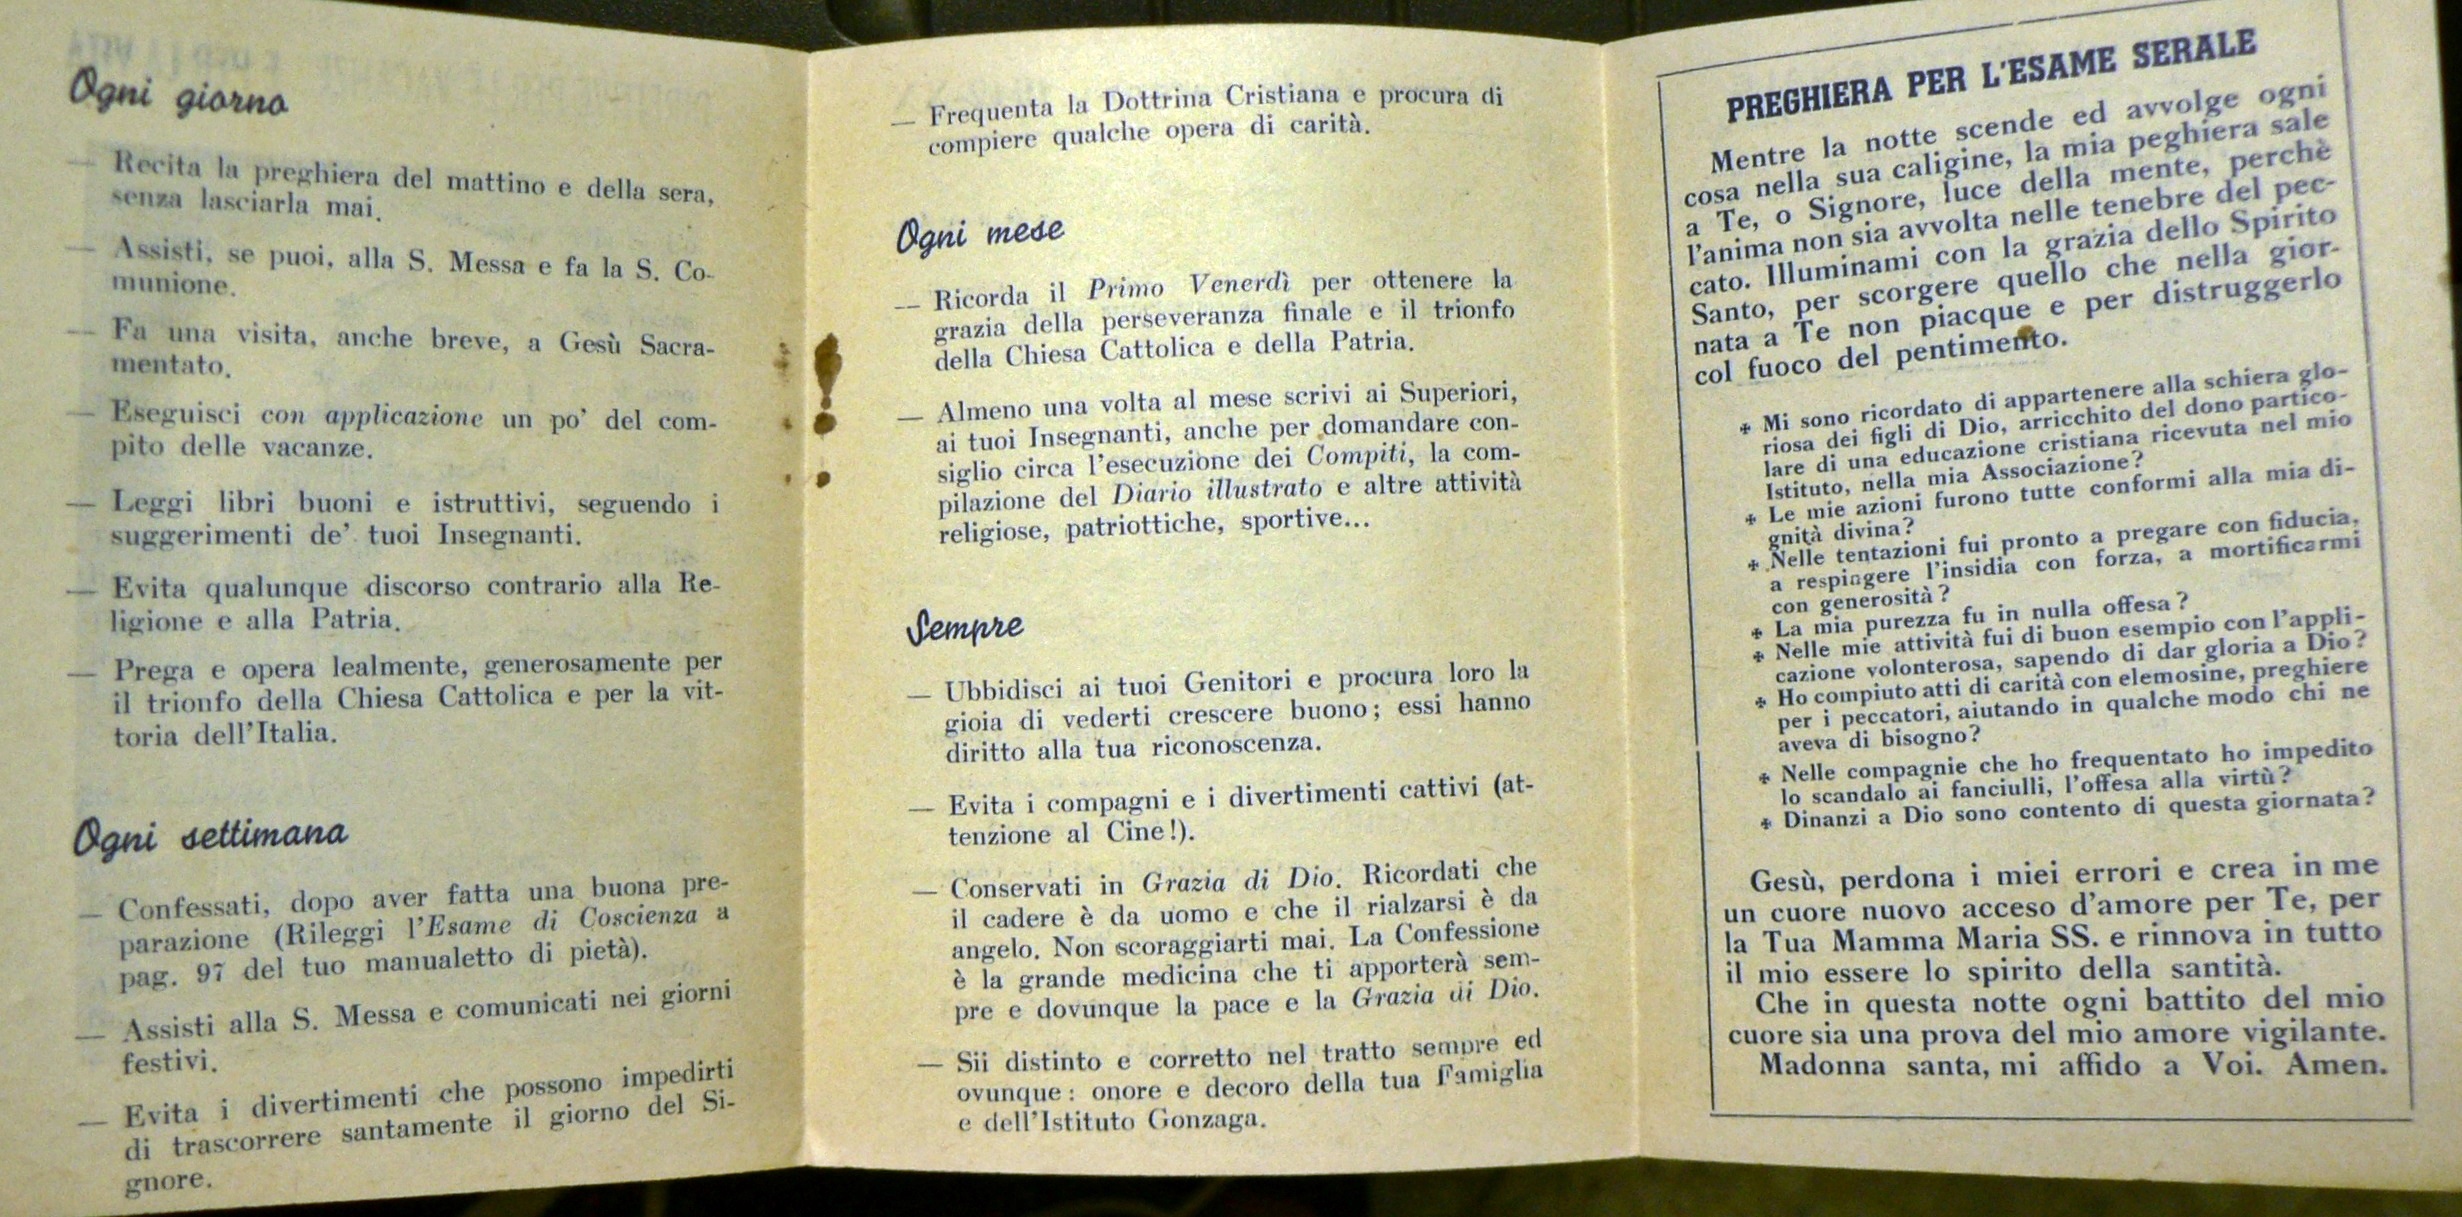 Ogni giorno
— Recita la preghiera del mattino e della sera,
senza lasciarla mai.
— Assisti, se puoi, alla S. Messa e fa la S. Co-
munione.
— Fa una visita, anche breve, a Gesù Sacra-
mentato.
— Eseguisci con applicazione un po' del com-
pito delle vacanze.
— Leggi libri buoni e istruttivi, seguendo i
suggerimenti de' tuoi Insegnanti.
— Evita qualunque discorso contrario alla Re-
ligione e alla Patria.
— Prega e opera lealmente, generosamente per
il trionfo della Chiesa Cattolica e per la vit-
toria dell'Italia.
Ogni settimana
— Confessati, dopo aver fatta una buona pre-
parazione (Rileggi l'Esame di Coscienza a
pag. 97 del tuo manualetto di pietà).
— Assisti alla S. Messa e comunicati nei giorni
festivi.
— Evita i divertimenti che possono impedirti
di trascorrere santamente il giorno del Si-
gnore.
— Frequenta la Dottrina Cristiana e procura di
compiere qualche opera di carità.
Ogni mese
— Ricorda il Primo Venerdì per ottenere la
grazia della perseveranza finale e il trionfo
della Chiesa Cattolica e della Patria.
— Almeno una volta al mese scrivi ai Superiori,
ai tuoi Insegnanti, anche per domandare con-
siglio circa l'esecuzione dei Compiti, la com-
pilazione del Diario illustrato e altre attività
religiose, patriottiche, sportive...
Sempre
— Ubbidisci ai tuoi Genitori e procura loro la
gioia di vederti crescere buono; essi hanno
diritto alla tua riconoscenza.
— Evita i compagni e i divertimenti cattivi (at-
tenzione al Cine!).
— Conservati in Grazia di Dio. Ricordati che
il cadere è da uomo e che il rialzarsi è da
angelo. Non scoraggiarti mai. La Confessione
è la grande medicina che ti apporterà sem-
pre e dovunque la pace e la Grazia di Dio.
— Sii distinto e corretto nel tratto sempre ed
ovunque: onore e decoro della tua Famiglia
e dell'Istituto Gonzaga.
PREGHIERA PER L'ESAME SERALE
Mentre la notte scende ed avvolge ogni
cosa nella sua caligine, la mia peghiera sale
a Te, o Signore, luce della mente, perchè
l'anima non sia avvolta nelle tenebre del pec-
cato. Illuminami con la grazia dello Spirito
Santo, per scorgere quello che nella gior-
nata a Te non piacque e per distruggerlo
col fuoco del pentimento.
✠ Mi sono ricordato di appartenere alla schiera glo-
riosa dei figli di Dio, arricchito del dono partico-
lare di una educazione cristiana ricevuta nel mio
Istituto, nella mia Associazione?
✠ Le mie azioni furono tutte conformi alla mia di-
gnità divina?
✠ Nelle tentazioni fui pronto a pregare con fiducia,
a respingere l'insidia con forza, a mortificarmi
con generosità?
✠ La mia purezza fu in nulla offesa?
✠ Nelle mie attività fui di buon esempio con l'appli-
cazione volonterosa, sapendo di dar gloria a Dio?
✠ Ho compiuto atti di carità con elemosine, preghiere
per i peccatori, aiutando in qualche modo chi ne
aveva di bisogno?
✠ Nelle compagnie che ho frequentato ho impedito
lo scandalo ai fanciulli, l'offesa alla virtù?
✠ Dinanzi a Dio sono contento di questa giornata?
Gesù, perdona i miei errori e crea in me
un cuore nuovo acceso d'amore per Te, per
la Tua Mamma Maria SS. e rinnova in tutto
il mio essere lo spirito della santità.
Che in questa notte ogni battito del mio
cuore sia una prova del mio amore vigilante.
Madonna santa, mi affido a Voi. Amen.